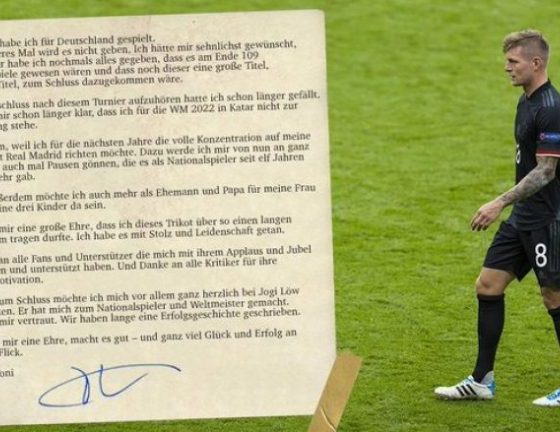 habe ich für Deutschland gespielt.
eres Mal wird es nicht geben. Ich hätte mir sehnlichst gewünscht,
r habe ich nochmals alles gegeben, dass es am Ende 109
piele gewesen wären und dass noch dieser eine große Titel,
Titel, zum Schluss dazugekommen wäre.
schluss nach diesem Turnier aufzuhören hatte ich schon länger gefällt.
mir schon länger klar, dass ich für die WM 2022 in Katar nicht zur
ng stehe.
m, weil ich für die nächsten Jahre die volle Konzentration auf meine
t Real Madrid richten möchte. Dazu werde ich mir von nun an ganz
auch mal Pausen gönnen, die es als Nationalspieler seit elf Jahren
ehr gab.
ßerdem möchte ich auch mehr als Ehemann und Papa für meine Frau
ine drei Kinder da sein.
mir eine große Ehre, dass ich dieses Trikot über so einen langen
m tragen durfte. Ich habe es mit Stolz und Leidenschaft getan.
an alle Fans und Unterstützer die mich mit ihrem Applaus und Jubel
en und unterstützt haben. Und Danke an alle Kritiker für ihre
otivation.
um Schluss möchte ich mich vor allem ganz herzlich bei Jogi Löw
ken. Er hat mich zum Nationalspieler und Weltmeister gemacht.
mir vertraut. Wir haben lange eine Erfolgsgeschichte geschrieben.
mir eine Ehre, macht es gut – und ganz viel Glück und Erfolg an
Flick.
oni
8